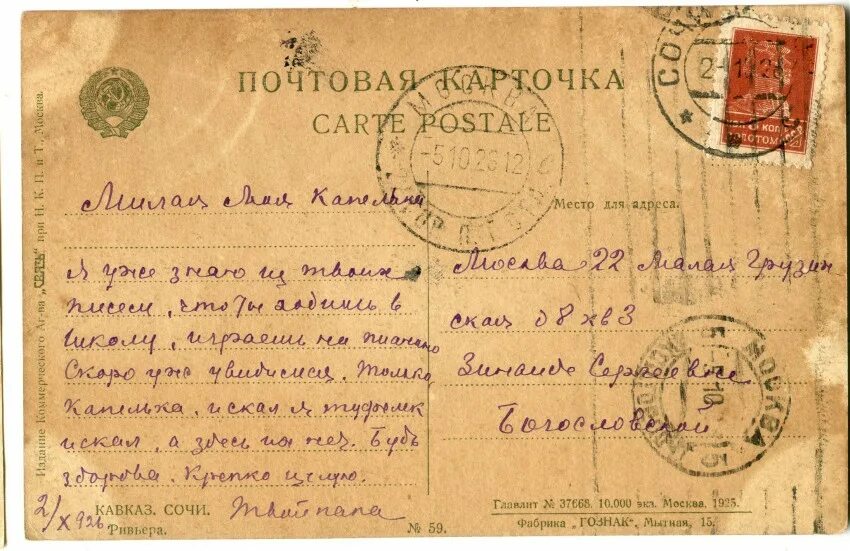 ПОЧТОВАЯ КАРТОЧКА
CARTE POSTALE
Издание Коммерческого Аг-ва „СВЯЗЬ" при Н. К. П. и Т., Москва.
Милая Моя Капелька
Я уже знаю из твоих
писем, что ты ходишь в
школу, играешь на пианино
Скоро уже увидимся. Только,
Капелька, искал я туфельк
искал, а здесь их нет. Будь
здорова. Крепко целую.
Твой папа
2/X 926
КАВКАЗ. СОЧИ.
Ривьера.
№ 59.
Место для адреса.
Москва 22 Малая Грузин
ская д 8 кв 3
Зинаиде Сергеевне
Богословской
Главлит № 37668. 10.000 экз. Москва, 1925.
Фабрика „ГОЗНАК", Мытная, 15.
СОЧИ
МОСКВА
-5.10.26.12
МОСКВА